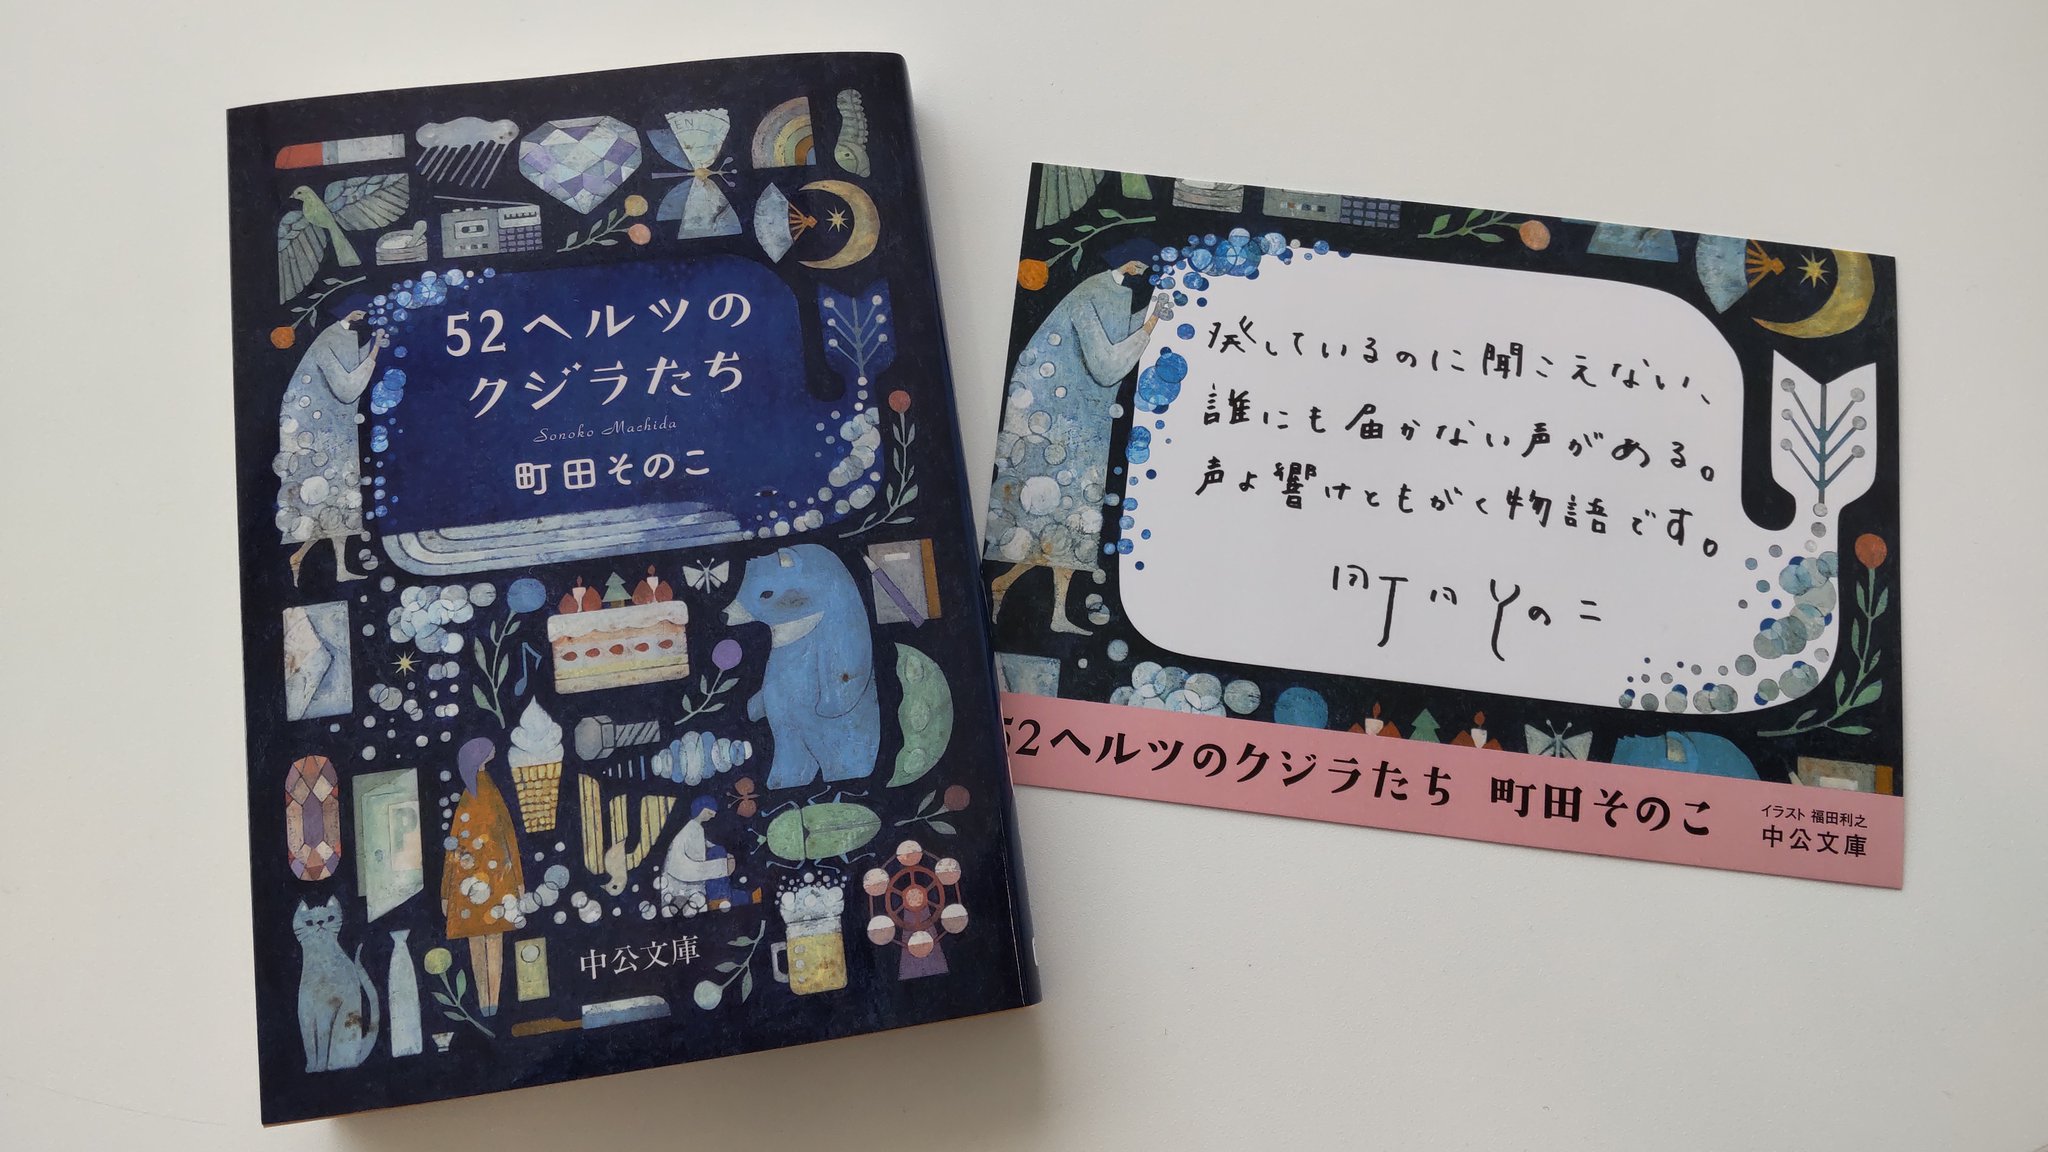 52ヘルツの
クジラたち
Sonoko Machida
町田そのこ
EN
P
中公文庫
発しているのに聞こえない、
誰にも届かない声がある。
声よ響けともがく物語です。
町田そのこ
52ヘルツのクジラたち 町田そのこ
イラスト 福田利之
中公文庫